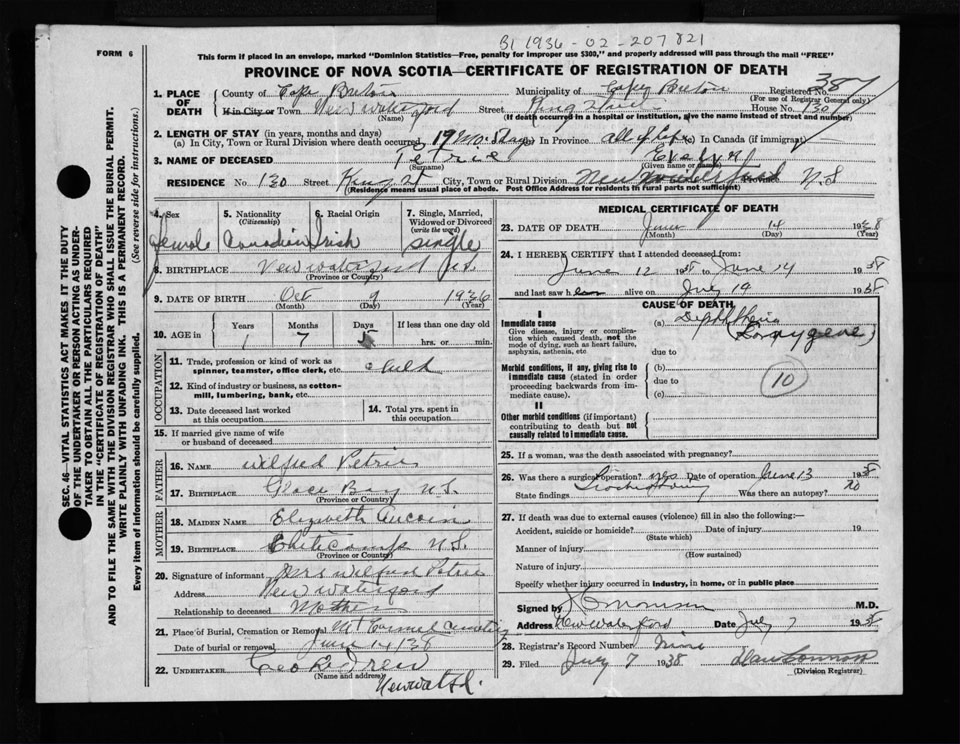 B1 1936-02-207821
FORM 6
This form if placed in an envelope, marked "Dominion Statistics—Free, penalty for improper use $300," and properly addressed will pass through the mail "FREE"
PROVINCE OF NOVA SCOTIA—CERTIFICATE OF REGISTRATION OF DEATH
387
1. PLACE OF DEATH
County of Cape Breton Municipality of Cape Breton Registered No.
(For use of Registrar General only)
H in City or Town New Waterford Street King Street House No. 130
(Name) (If death occurred in a hospital or institution, give the name instead of street and number)
2. LENGTH OF STAY (in years, months and days)
(a) In City, Town or Rural Division where death occurred 19 Mo. 5 days In Province all of life In Canada (if immigrant)
3. NAME OF DECEASED Petrie Evelyn
(Surname) (Given name or names)
RESIDENCE No. 130 Street King St City, Town or Rural Division New Waterford Province N.S
(Residence means usual place of abode. Post Office Address for residents in rural parts not sufficient)
4. Sex female
5. Nationality (Citizenship) Canadian
6. Racial Origin Irish
7. Single, Married, Widowed or Divorced (write the word) Single
8. BIRTHPLACE New Waterford
(Province or Country)
9. DATE OF BIRTH Oct 9 1936
(Month) (Day) (Year)
10. AGE in
Years Months Days If less than one day old
1 7 5 hrs. or min.
OCCUPATION
11. Trade, profession or kind of work as spinner, teamster, office clerk, etc. child
12. Kind of industry or business, as cotton-mill, lumbering, bank, etc.
13. Date deceased last worked at this occupation
14. Total yrs. spent in this occupation
15. If married give name of wife or husband of deceased
FATHER
16. NAME Wilfred Petrie
17. BIRTHPLACE Glace Bay N.S.
(Province or Country)
MOTHER
18. MAIDEN NAME Elizabeth Aucoin
19. BIRTHPLACE Cheticamp N.S.
(Province or Country)
20. Signature of informant Mrs Wilfred Petrie
Address New Waterford
Relationship to deceased Mother
21. Place of Burial, Cremation or Removal Mt Carmel Cemetery
Date of burial or removal June 14/38
22. UNDERTAKER
(Name and address)
MEDICAL CERTIFICATE OF DEATH
23. DATE OF DEATH June 14 1938
(Month) (Day) (Year)
24. I HEREBY CERTIFY that I attended deceased from:
June 12 1938 to June 14 1938
and last saw h alive on July 14 1938
CAUSE OF DEATH
I
Immediate cause
Give disease, injury or complication which caused death, not the mode of dying, such as heart failure, asphyxia, asthenia, etc
(a) Diphtheria
Laryngeal
due to
Morbid conditions, if any, giving rise to immediate cause (stated in order proceeding backwards from immediate cause).
(b)
due to
(c)
10
II
Other morbid conditions (if important) contributing to death but not causally related to immediate cause.
25. If a woman, was the death associated with pregnancy?
26. Was there a surgical operation? yes Date of operation June 13 1938
State findings Tracheotomy Was there an autopsy? no
27. If death was due to external causes (violence) fill in also the following:—
Accident, suicide or homicide? Date of injury 19
(State which)
Manner of injury
(How sustained)
Nature of injury
Specify whether injury occurred in industry, in home, or in public place
Signed by M.D.
Address New Waterford Date July 7 1938
28. Registrar's Record Number Nine
29. Filed July 7 1938
(Division Registrar)
SEC. 46—VITAL STATISTICS ACT MAKES IT THE DUTY OF THE UNDERTAKER OR PERSON ACTING AS UNDERTAKER TO OBTAIN ALL THE PARTICULARS REQUIRED IN THE "CERTIFICATE OF REGISTRATION OF DEATH" AND TO FILE THE SAME WITH THE DIVISION REGISTRAR WHO SHALL ISSUE THE BURIAL PERMIT.
WRITE PLAINLY WITH UNFADING INK. THIS IS A PERMANENT RECORD.
Every item of information should be carefully supplied. (See reverse side for instructions.)